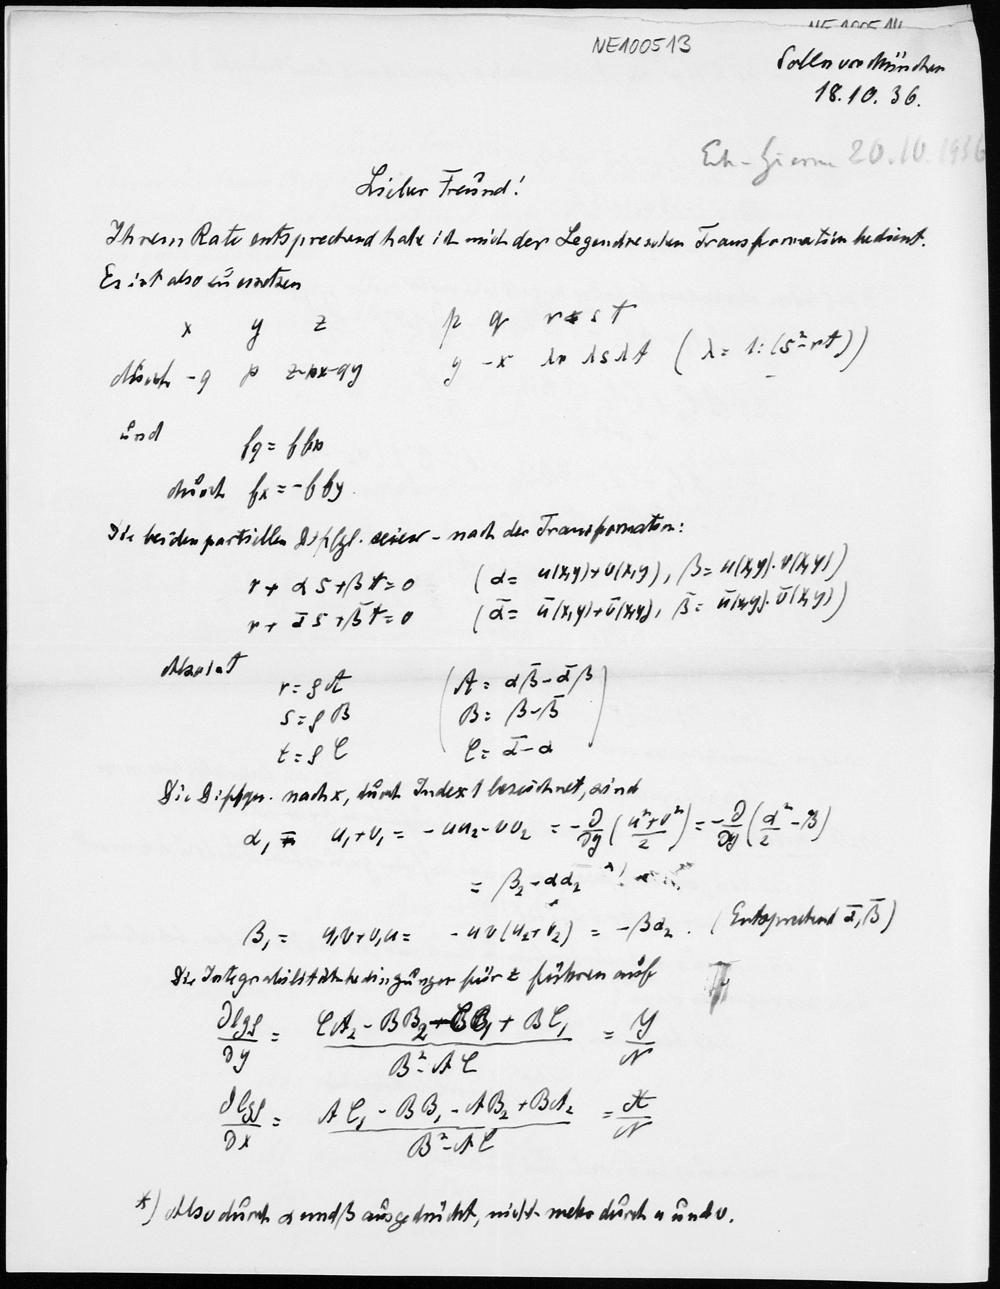 NE100513
NE100514
Solln vor München
18.10.36.
20.10.1936
Lieber Freund!
Ihrem Rate entsprechend habe ich mich der Legendreschen Transformation bedient.
Es ist also zu ersetzen
x y z p q r s t
durch -q p z-px-qy y -x λr λs λt (λ = 1:(s²-rt))
und fq = f fp
durch fx = -f fy.
Die beiden partiellen Diffgl. seien - nach der Transformation:
r + α s + β t = 0 (α = u(x,y)+v(x,y), β = u(x,y)·v(x,y))
r + ᾱ s + β̄ t = 0 (ᾱ = ū(x,y)+v̄(x,y), β̄ = ū(x,y)·v̄(x,y))
Also ist
r = ρ A (A = αβ̄ - ᾱβ
s = ρ B B = β - β̄
t = ρ C C = ᾱ - α)
Die Diffqu. nach x, durch Index 1 bezeichnet, sind
α₁ = u₁+v₁ = -uu₂-vv₂ = -∂/∂y (u²+v²/2) = -∂/∂y (α²/2 - β)
= β₂ - αα₂ *)
β₁ = u₁v+v₁u = -uv(u₂+v₂) = -βα₂. (Entsprechend ᾱ, β̄)
Die Integrabilitätsbedingungen für z führen auf
∂lgρ/∂y = CA₂ - BB₂ - CB₁ + BC₁ / B²-AC = Y/N
∂lgρ/∂x = AC₁ - BB₁ - AB₂ + BA₂ / B²-AC = X/N
*) Also durch α und β ausgedrückt, nicht mehr durch u und v.